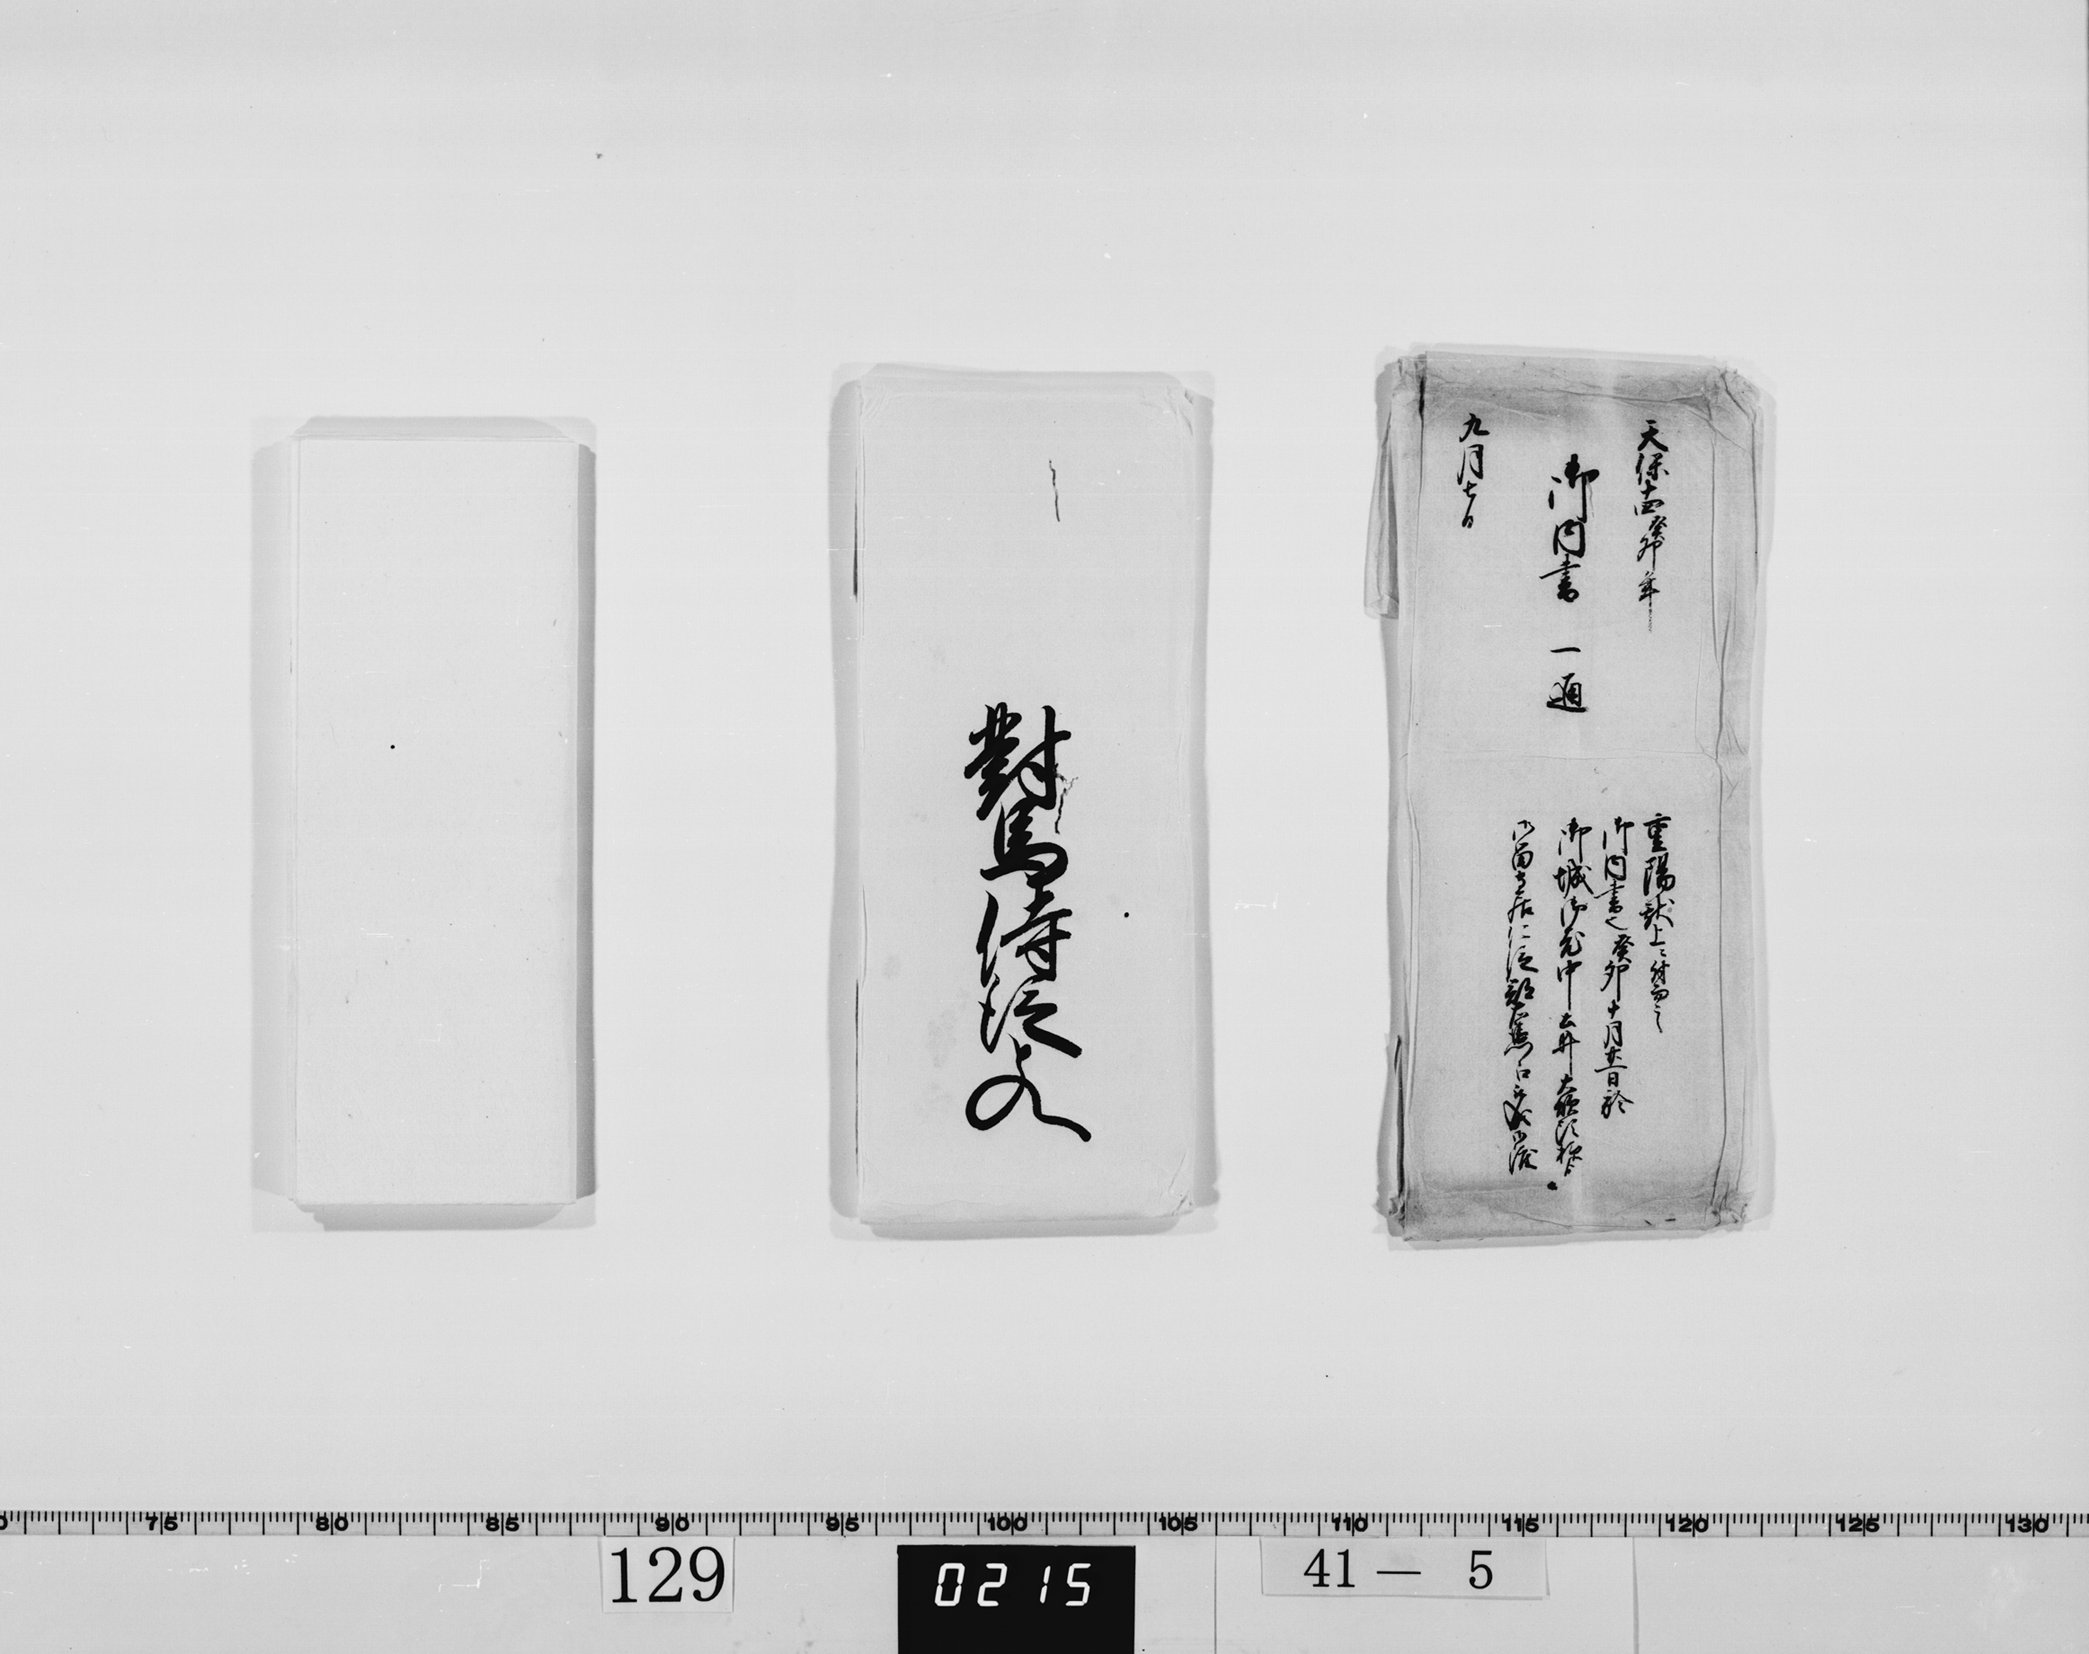 天保十四癸卯年
御内書 一通
九月七日
重陽献上ニ付而之
御内書也癸卯十月廿一日於
御城御老中土井大炊頭様より
御留守居仁位
對馬侍従とのへ
75 80 85 90 95 100 105 110 115 120 125 130
129
0215
41― 5